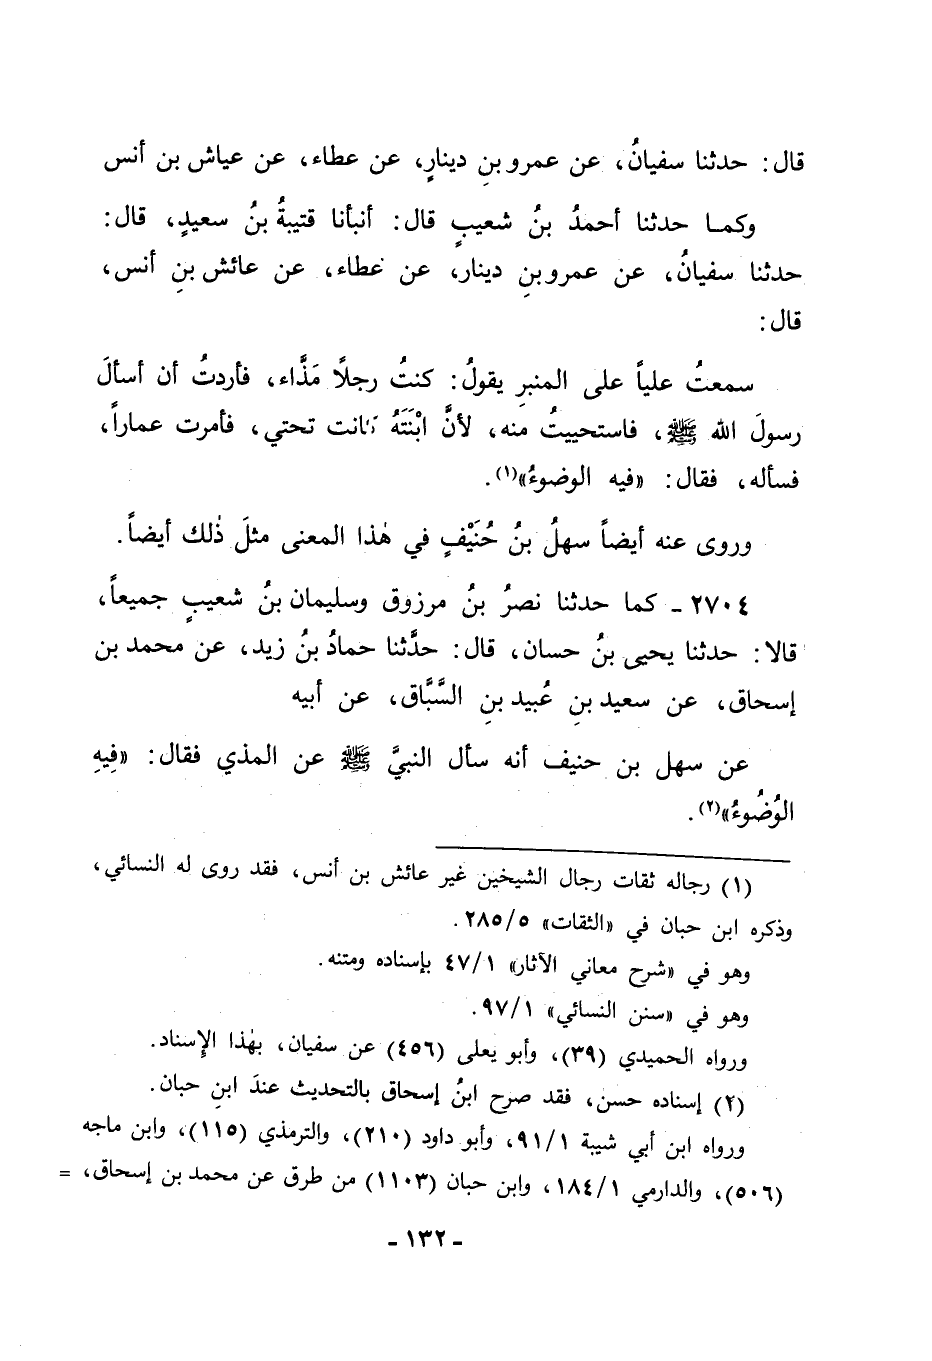 قال: حدثنا سفيانُ، عن عمرو بنِ دينارٍ، عن عطاء، عن عياش بن أنس
وكما حدثنا أحمدُ بنُ شعيبٍ قال: أنبأنا قتيبةُ بنُ سعيدٍ، قال:
حدثنا سفيانُ، عن عمرو بنِ دينار، عن عطاء، عن عائش بنِ أنس،
قال:
سمعتُ علياً على المنبرِ يقولُ: كنتُ رجلًا مَذَّاء، فأردتُ أن أسألَ
رسولَ الله ﷺ، فاستحييتُ منه، لأنَّ ابْنَتَهُ كانت تحتي، فأمرت عماراً،
فسأله، فقال: «فيه الوضوءُ»(١).
وروى عنه أيضاً سهلُ بنُ حُنَيْفٍ في هٰذا المعنى مثلَ ذٰلك أيضاً.
٢٧٠٤ ـ كما حدثنا نصرُ بنُ مرزوق وسليمان بنُ شعيبٍ جميعاً،
قالا: حدثنا يحيى بنُ حسان، قال: حدَّثنا حمادُ بنُ زيد، عن محمد بن
إسحاق، عن سعيد بنِ عُبيد بنِ السَّبَّاق، عن أبيه
عن سهل بن حنيف أنه سأل النبيَّ ﷺ عن المذي فقال: «فِيهِ
الوُضُوءُ»(٢).
(١) رجاله ثقات رجال الشيخين غير عائش بن أنس، فقد روى له النسائي،
وذكره ابن حبان في «الثقات» ٢٨٥/٥.
وهو في «شرح معاني الآثار» ٤٧/١ بإسناده ومتنه.
وهو في «سنن النسائي» ٩٧/١.
ورواه الحميدي (٣٩)، وأبو يعلى (٤٥٦) عن سفيان، بهٰذا الإِسناد.
(٢) إسناده حسن، فقد صرح ابنُ إسحاق بالتحديث عندَ ابنِ حبان.
ورواه ابن أبي شيبة ٩١/١، وأبو داود (٢١٠)، والترمذي (١١٥)، وابن ماجه
(٥٠٦)، والدارمي ١٨٤/١، وابن حبان (١١٠٣) من طرق عن محمد بن إسحاق، =
ـ ١٣٢ ـ